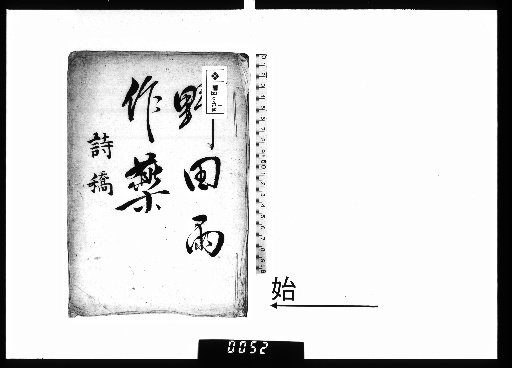 野田雨
作藥
詩稿
始
0052